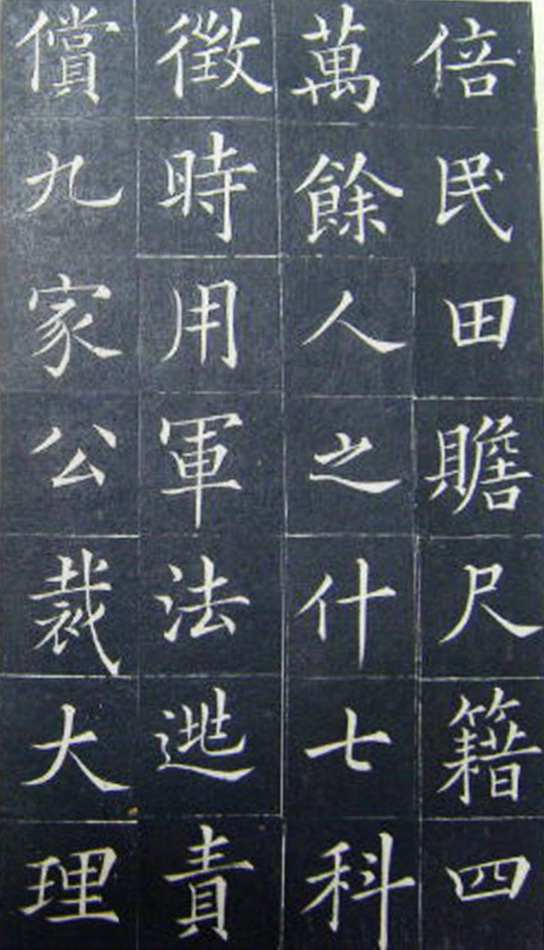 倍民田贍尺籍四
萬餘人之什七科
徵時用軍法逃責
償九家公裁大理